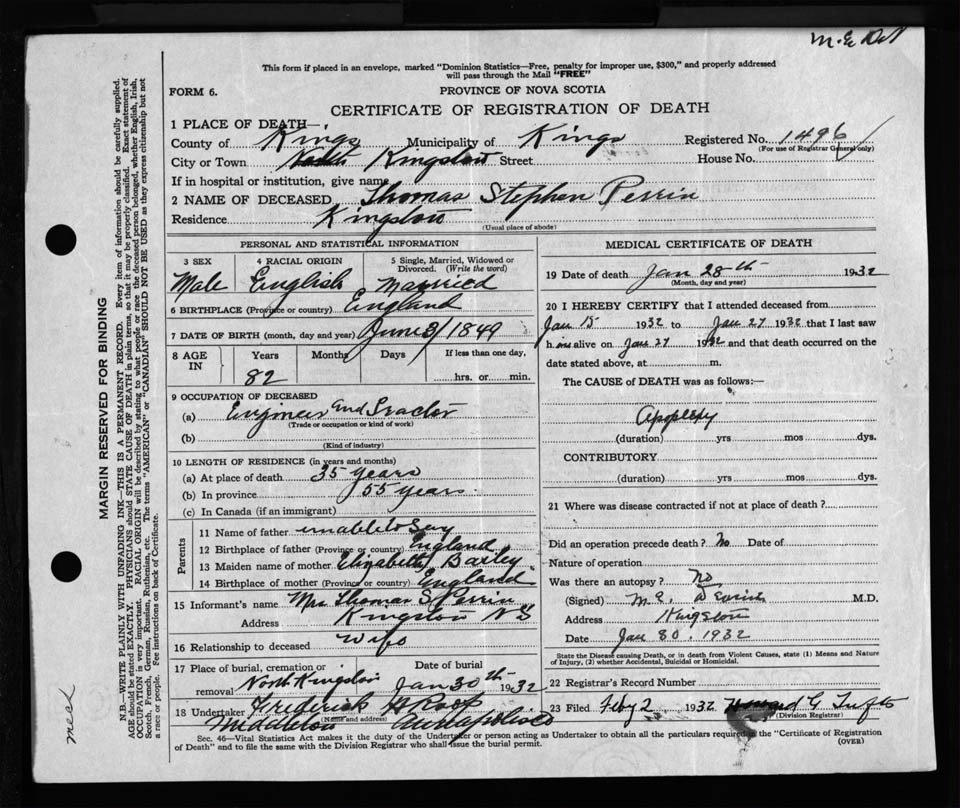 M.E. Del
This form if placed in an envelope, marked "Dominion Statistics—Free, penalty for improper use, $300," and properly addressed
will pass through the Mail "FREE"
FORM 6.
PROVINCE OF NOVA SCOTIA
CERTIFICATE OF REGISTRATION OF DEATH
1 PLACE OF DEATH—
County of Kings Municipality of Kings Registered No. 1496
(For use of Registrar General only)
City or Town Kingston Street House No.
If in hospital or institution, give name
2 NAME OF DECEASED Thomas Stephen Perrin
Residence Kingston
(Usual place of abode)
PERSONAL AND STATISTICAL INFORMATION
3 SEX 4 RACIAL ORIGIN 5 Single, Married, Widowed or
Divorced. (Write the word)
Male English Married
6 BIRTHPLACE (Province or country) England
7 DATE OF BIRTH (month, day and year) June 3/1849
8 AGE IN Years Months Days If less than one day,
82 hrs. or min.
9 OCCUPATION OF DECEASED
(a) Engineer and
(Trade or occupation or kind of work)
(b)
(Kind of industry)
10 LENGTH OF RESIDENCE (in years and months)
(a) At place of death 35 years
(b) In province 55 years
(c) In Canada (if an immigrant)
Parents
11 Name of father unable to Say
12 Birthplace of father (Province or country) England
13 Maiden name of mother Elizabeth Baxley
14 Birthplace of mother (Province or country) England
15 Informant's name Mrs Thomas S. Perrin
Address Kingston N S
16 Relationship to deceased wife
17 Place of burial, cremation or Date of burial
removal North Kingston Jan 30th 1932
18 Undertaker Frederick H Roop
(Name and address)
Middleton Annapolis Co
MEDICAL CERTIFICATE OF DEATH
19 Date of death Jan 28th 1932
(Month, day and year)
20 I HEREBY CERTIFY that I attended deceased from
Jan 15 1932 to Jan 27 1932 that I last saw
him alive on Jan 27 1932 and that death occurred on the
date stated above, at m.
The CAUSE of DEATH was as follows:—
Apoplexy
(duration) yrs mos dys.
CONTRIBUTORY
(duration) yrs mos dys.
21 Where was disease contracted if not at place of death?
Did an operation precede death? No Date of
Nature of operation
Was there an autopsy? no
(Signed) M.E. M.D.
Address Kingston
Date Jan 30. 1932
State the Disease causing Death, or in death from Violent Causes, state (1) Means and Nature
of Injury, (2) whether Accidental, Suicidal or Homicidal.
22 Registrar's Record Number
23 Filed Feby 2 1932 Howard G Tufts
(Division Registrar)
Sec. 46—Vital Statistics Act makes it the duty of the Undertaker or person acting as Undertaker to obtain all the particulars required in the "Certificate of Registration
of Death" and to file the same with the Division Registrar who shall issue the burial permit.
(OVER)
MARGIN RESERVED FOR BINDING
N.B.—WRITE PLAINLY WITH UNFADING INK—THIS IS A PERMANENT RECORD. Every item of information should be carefully supplied.
AGE should be stated EXACTLY. PHYSICIANS should STATE CAUSE OF DEATH in plain terms, so that it may be properly classified. Exact statement of
OCCUPATION is very important. RACIAL ORIGIN will be described by stating to what people or race the deceased person belonged, whether English, Irish,
Scotch, French, German, Russian, Ruthenian, etc. The terms "AMERICAN" or "CANADIAN" SHOULD NOT BE USED as they express citizenship but not
a race or people. Fee instructions on back of Certificate.